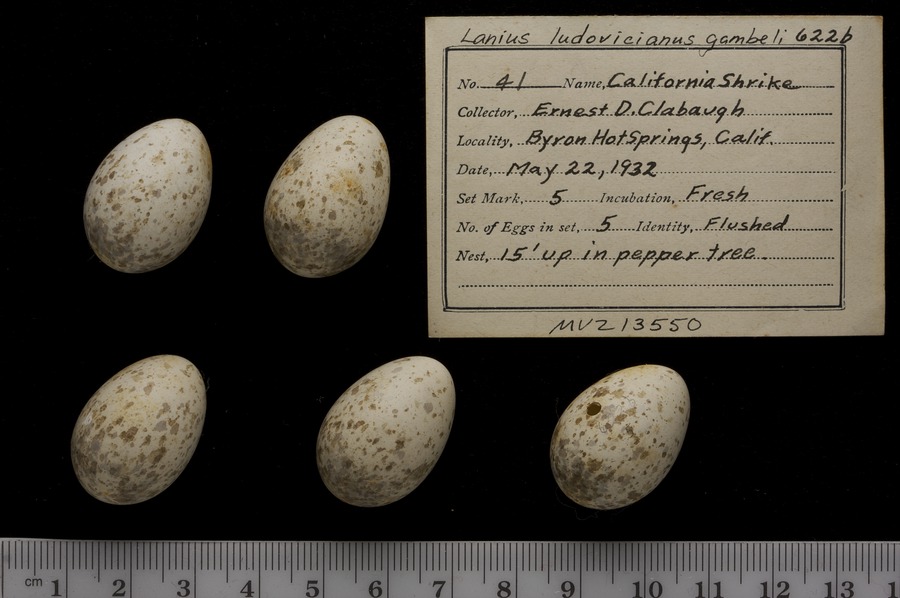 Lanius ludovicianus gambeli 622b
No. 41 Name, California Shrike
Collector, Ernest D. Clabaugh
Locality, Byron Hot Springs, Calif.
Date, May 22, 1932
Set Mark, 5 Incubation, Fresh
No. of Eggs in set, 5 Identity, Flushed
Nest, 15' up in pepper tree
MVZ 13550
cm 1 2 3 4 5 6 7 8 9 10 11 12 13